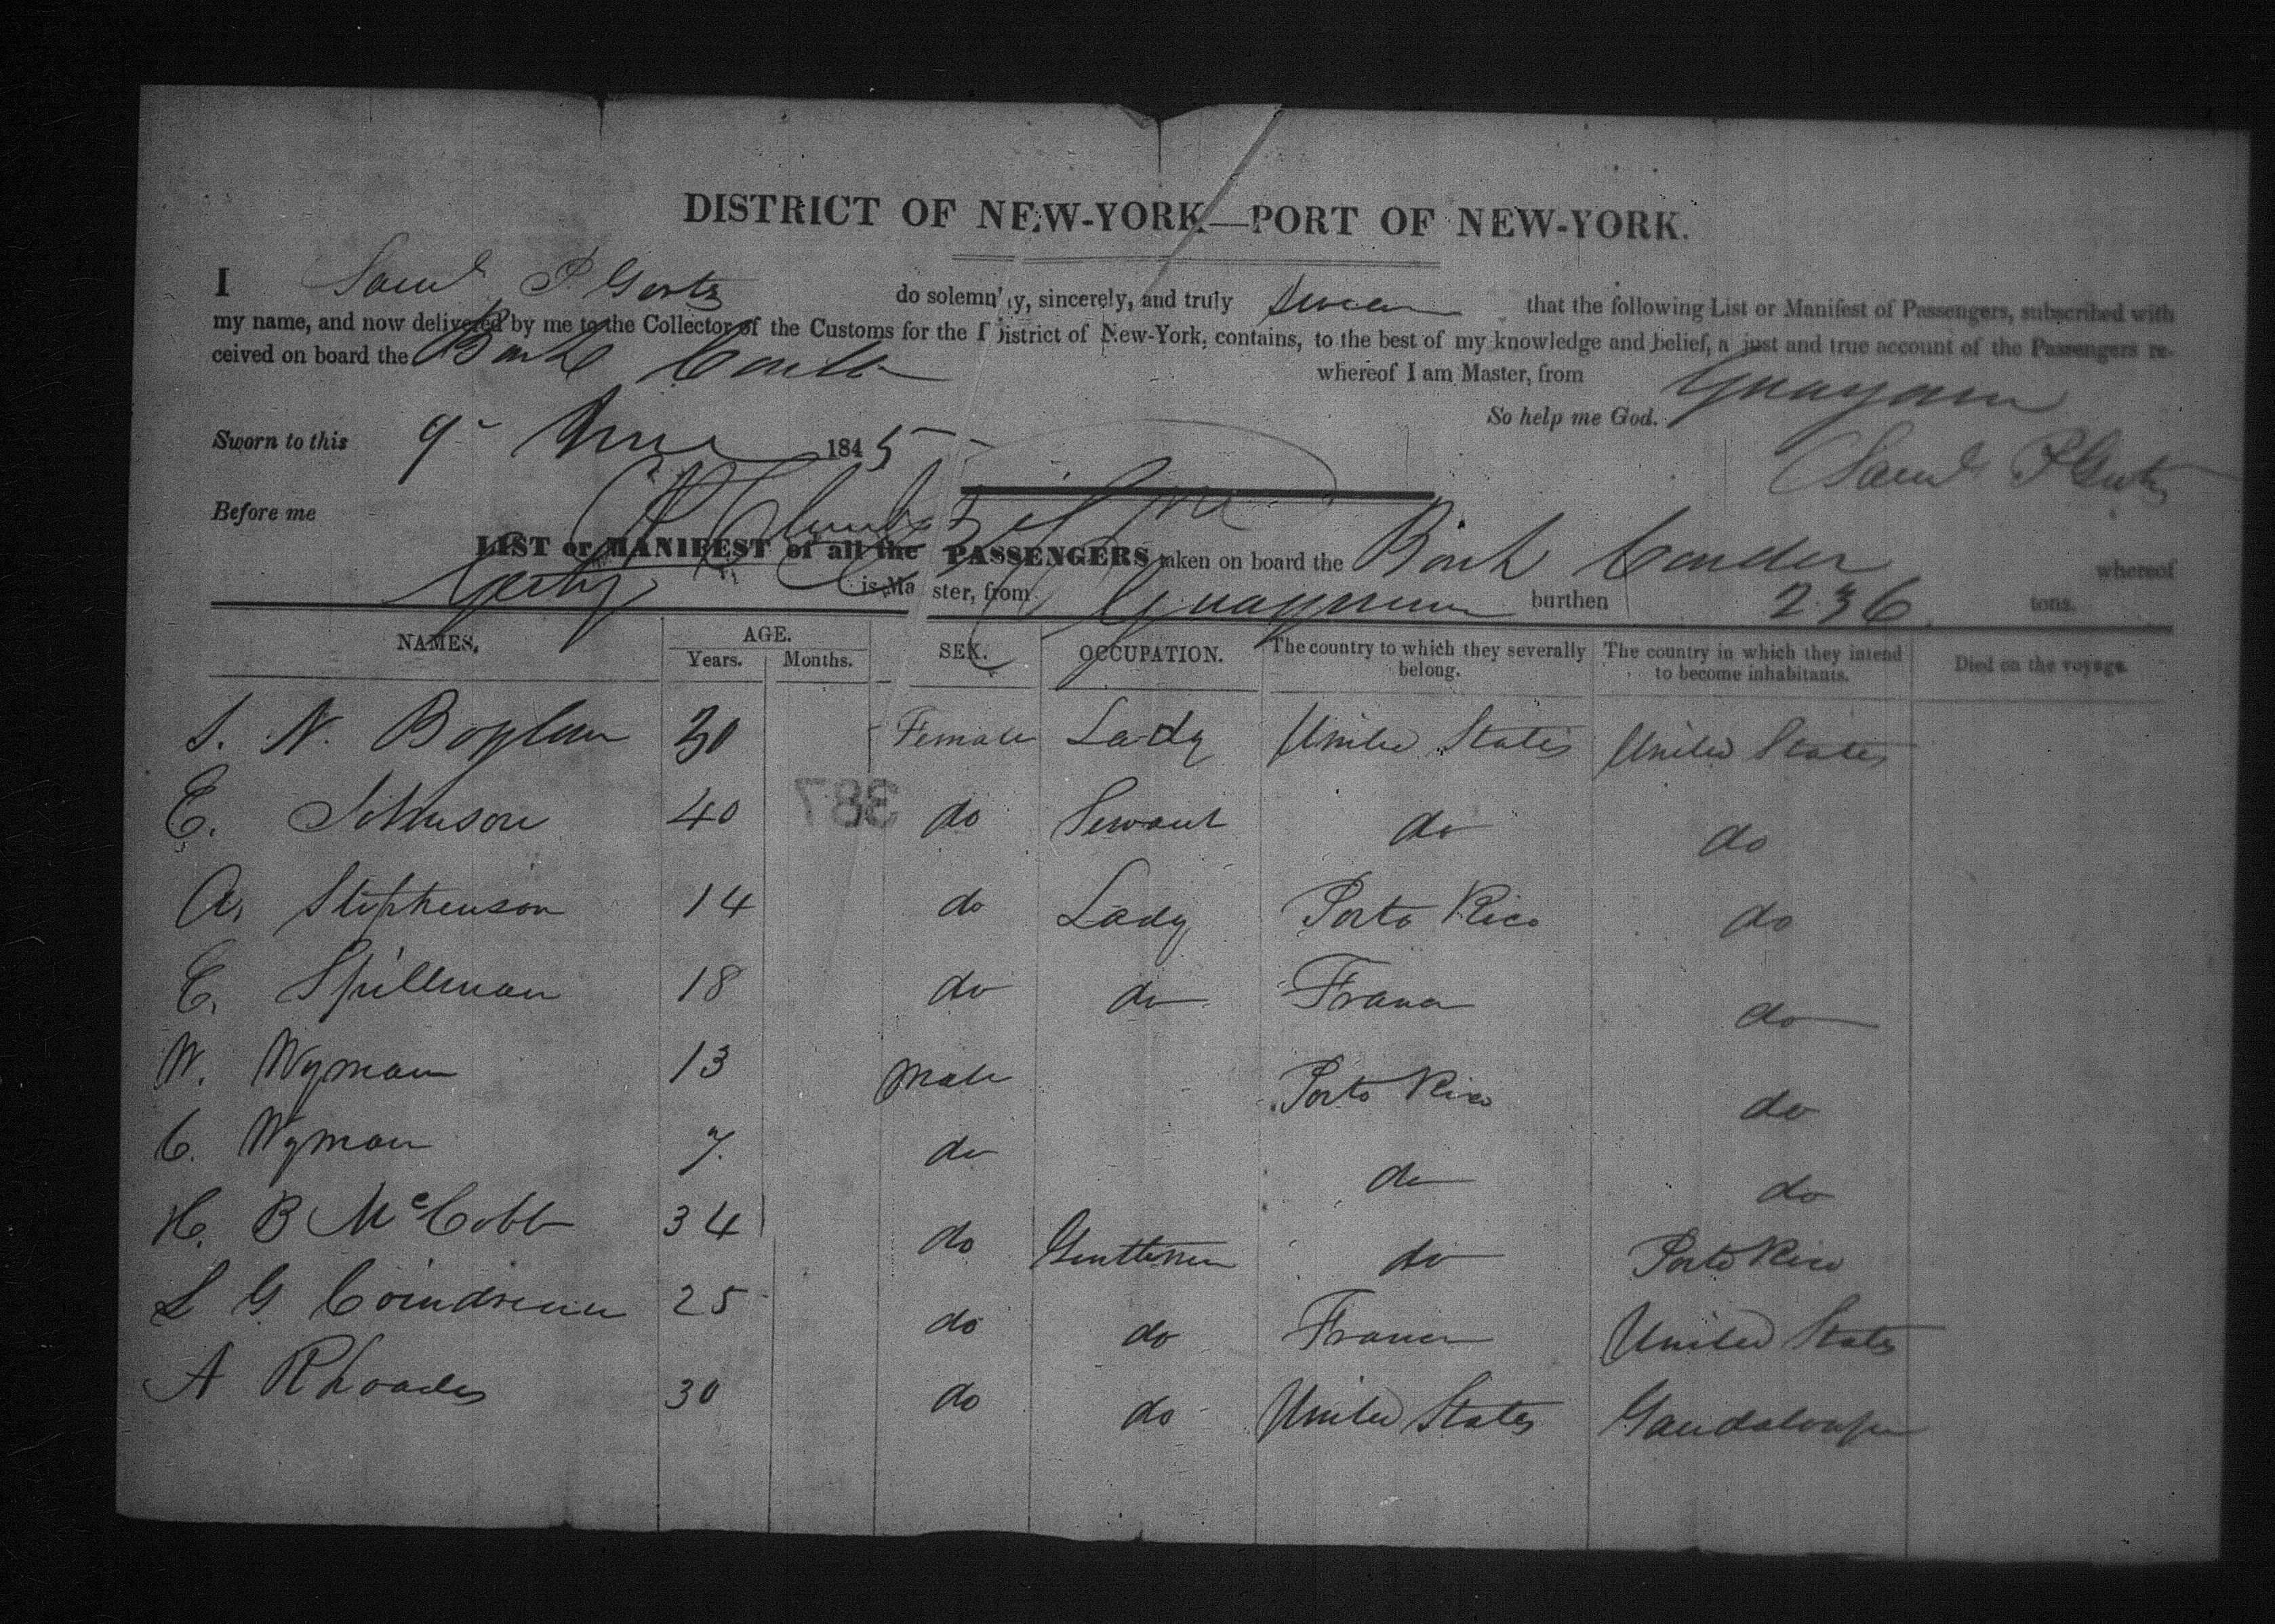 DISTRICT OF NEW-YORK—PORT OF NEW-YORK.
I Saml P. do solemnly, sincerely, and truly swear that the following List or Manifest of Passengers, subscribed with
my name, and now delivered by me to the Collector of the Customs for the District of New-York, contains, to the best of my knowledge and belief, a just and true account of the Passengers re-
ceived on board the Bark whereof I am Master, from Guayama
So help me God.
Sworn to this 9 June 1845
Saml P
Before me
LIST or MANIFEST of all the PASSENGERS taken on board the Bark whereof
is Master, from burthen 236 tons.
NAMES. AGE. SEX. OCCUPATION. The country to which they severally belong. The country in which they intend to become inhabitants. Died on the voyage.
Years. Months.
S. N. Boylan 30 Female Lady United States United States
387
E. Johnson 40 do Servant do do
A. Stephenson 14 do Lady Porto Rico do
C. Spillman 18 do do France do
W. Wyman 13 Male Porto Rico do
C. Wyman 7. do do do
H. B McCobb 34 do Gentleman do Porto Rico
L G 25 do do France United States
A Rhoades 30 do do United States Gaudaloupe